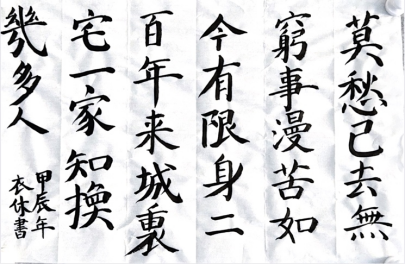 莫愁已去無
窮事漫苦如
今有限身二
百年来城裏
宅一家知換
幾多人
甲辰年
衣休書